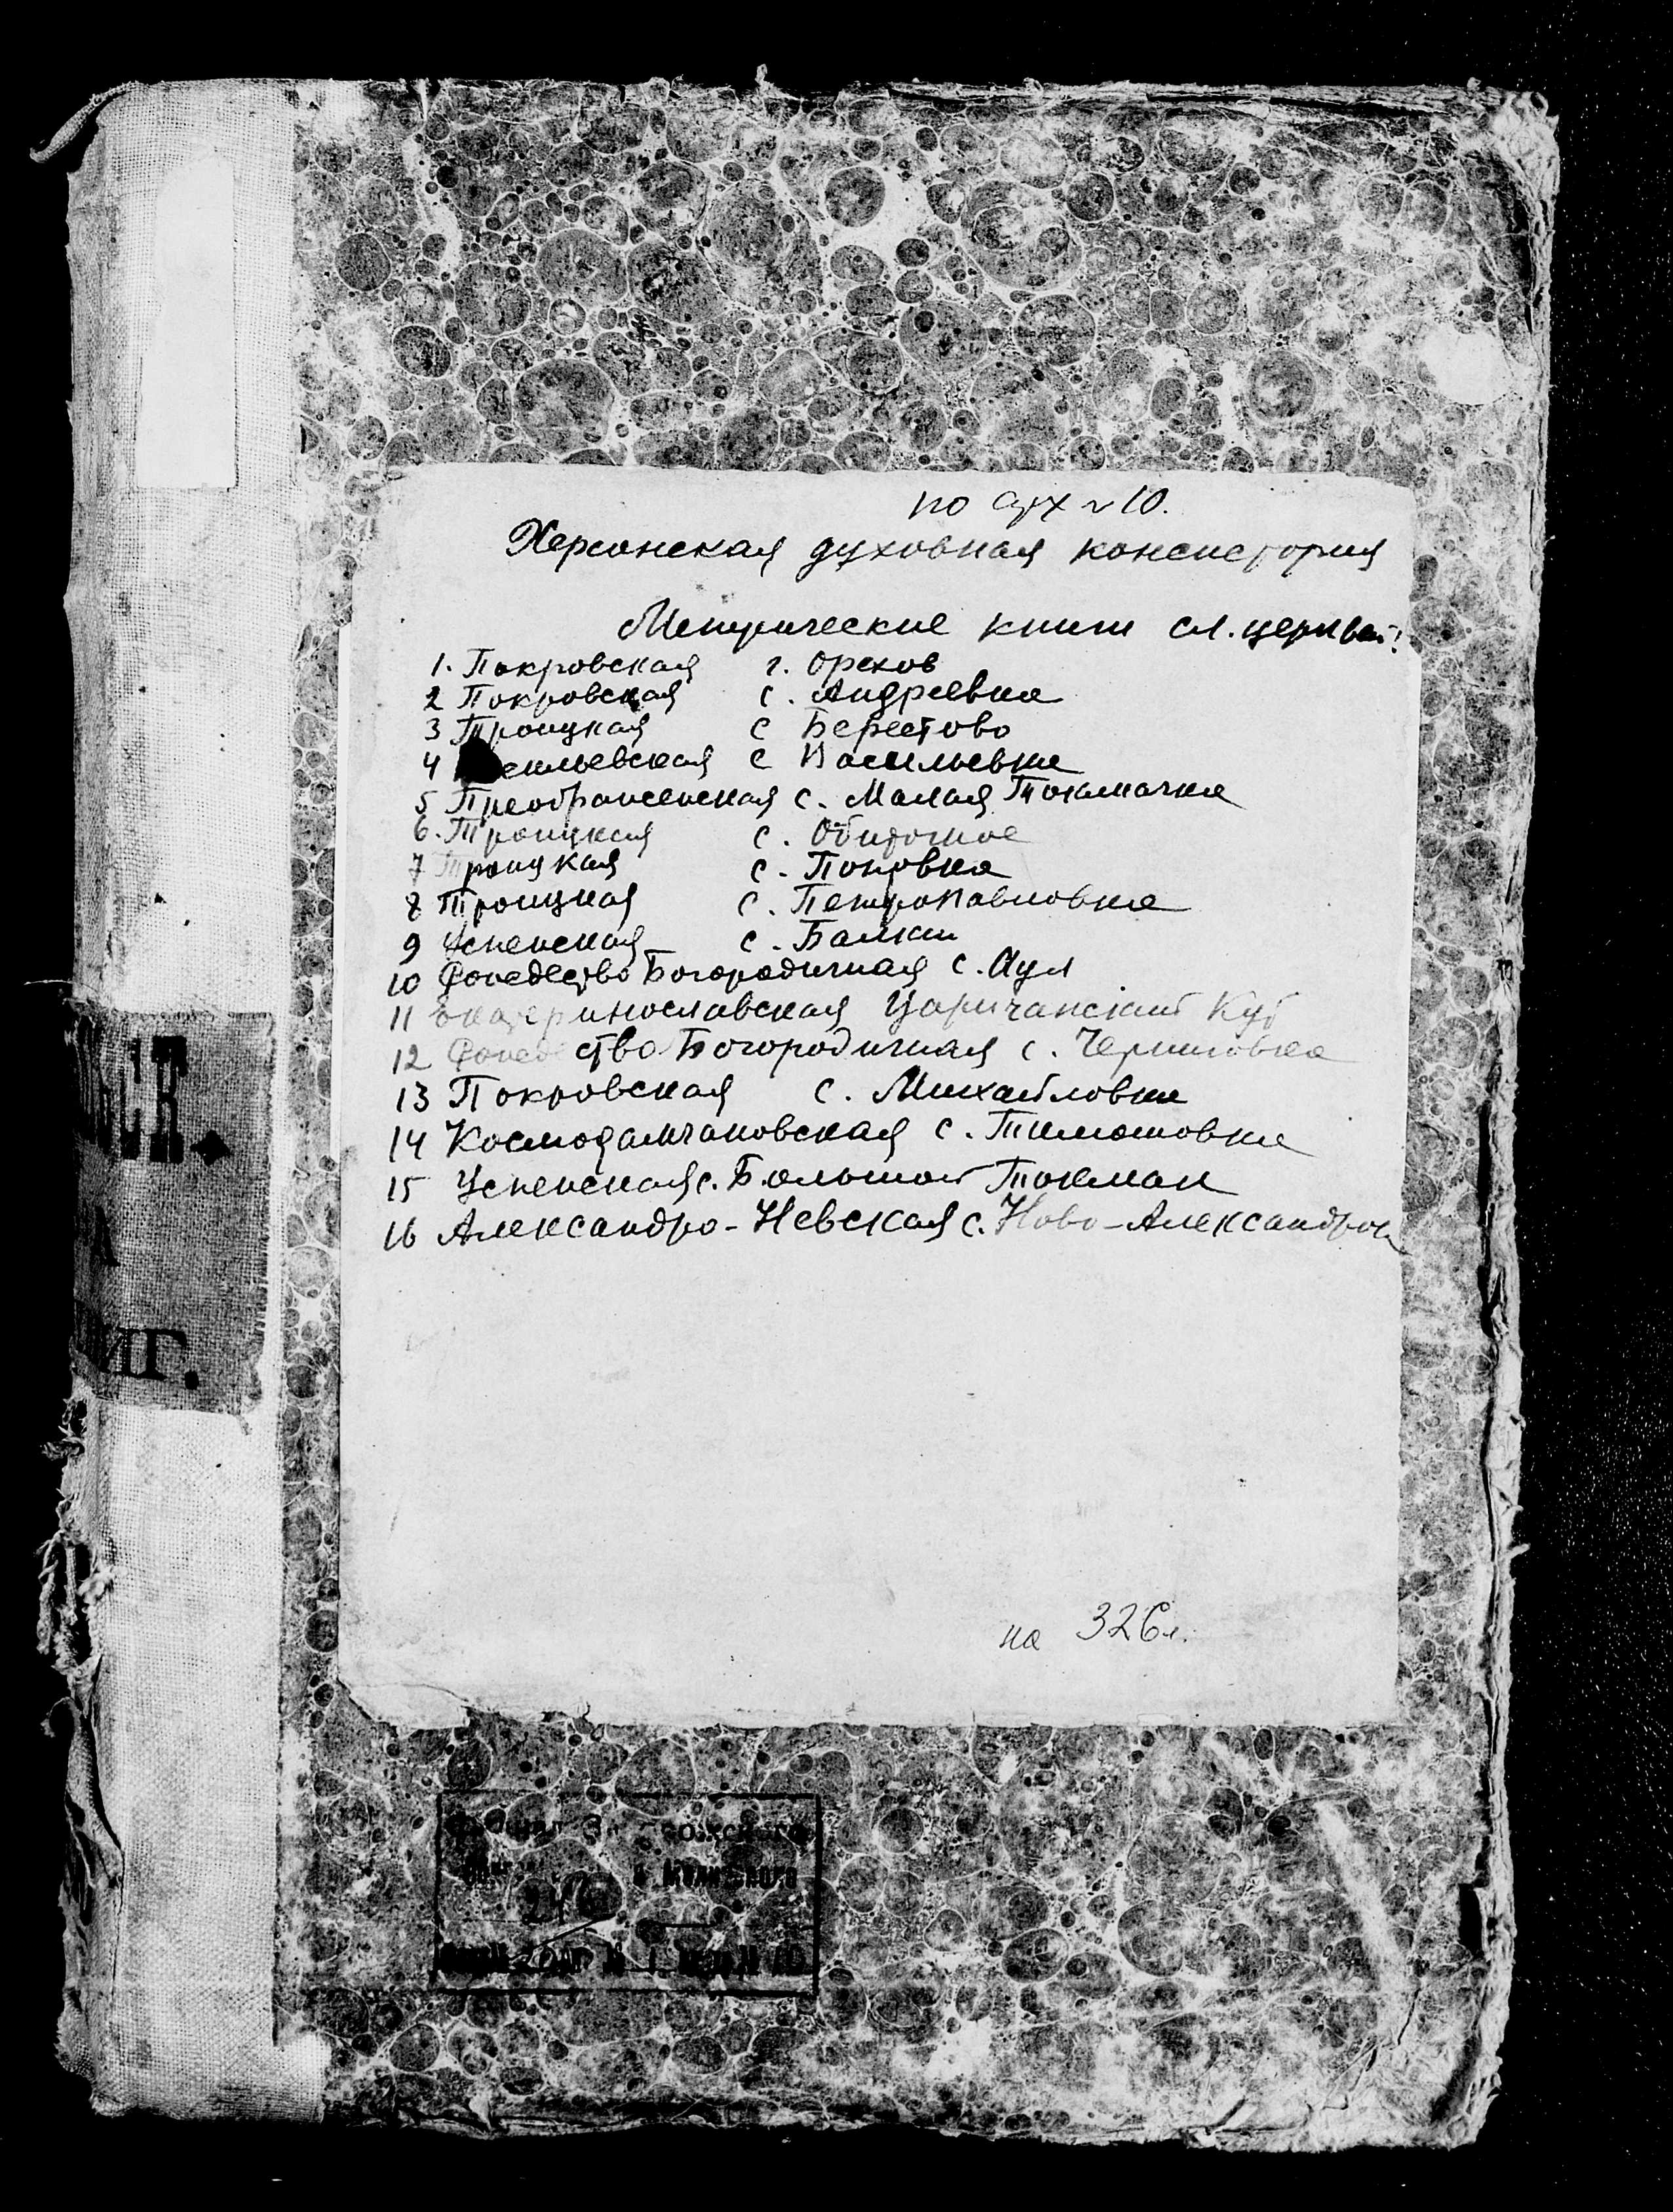 по арх № 10.
Херсонская духовная консистория
Метрические книги сл. церквей:
1. Покровская г. Орехов
2 Покровская с. Андреевка
3 Троицкая с Берестово
4 сильевская с Васильевка
5 Преображенская с. Малая Токмачка
6. Троицкая с. Обиточное
7 Троицкая с. Поповка
8 Троицкая с. Петропавловка
9 Успенская с. Балки
10 Рождество Богородичная с. Аул
11 Екатеринославская Царичанский Кут
12 Рождество Богородичная с. Черниговка
13 Покровская с. Михайловка
14 Космодамиановская с. Тимошовка
15 Успенская с. Большой Токмак
16 Александро-Невская с. Ново-Александровка
на 326 л.
ИГ.